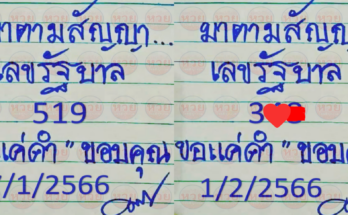 มาตามสัญญา...
เลขรัฐบาล
519
แค่ดำ " ขอบคุณ
/1/2566
มาตามสัญญา
เลขรัฐบาล
3
ขอแค่ดำ " ขอบ
1/2/2566